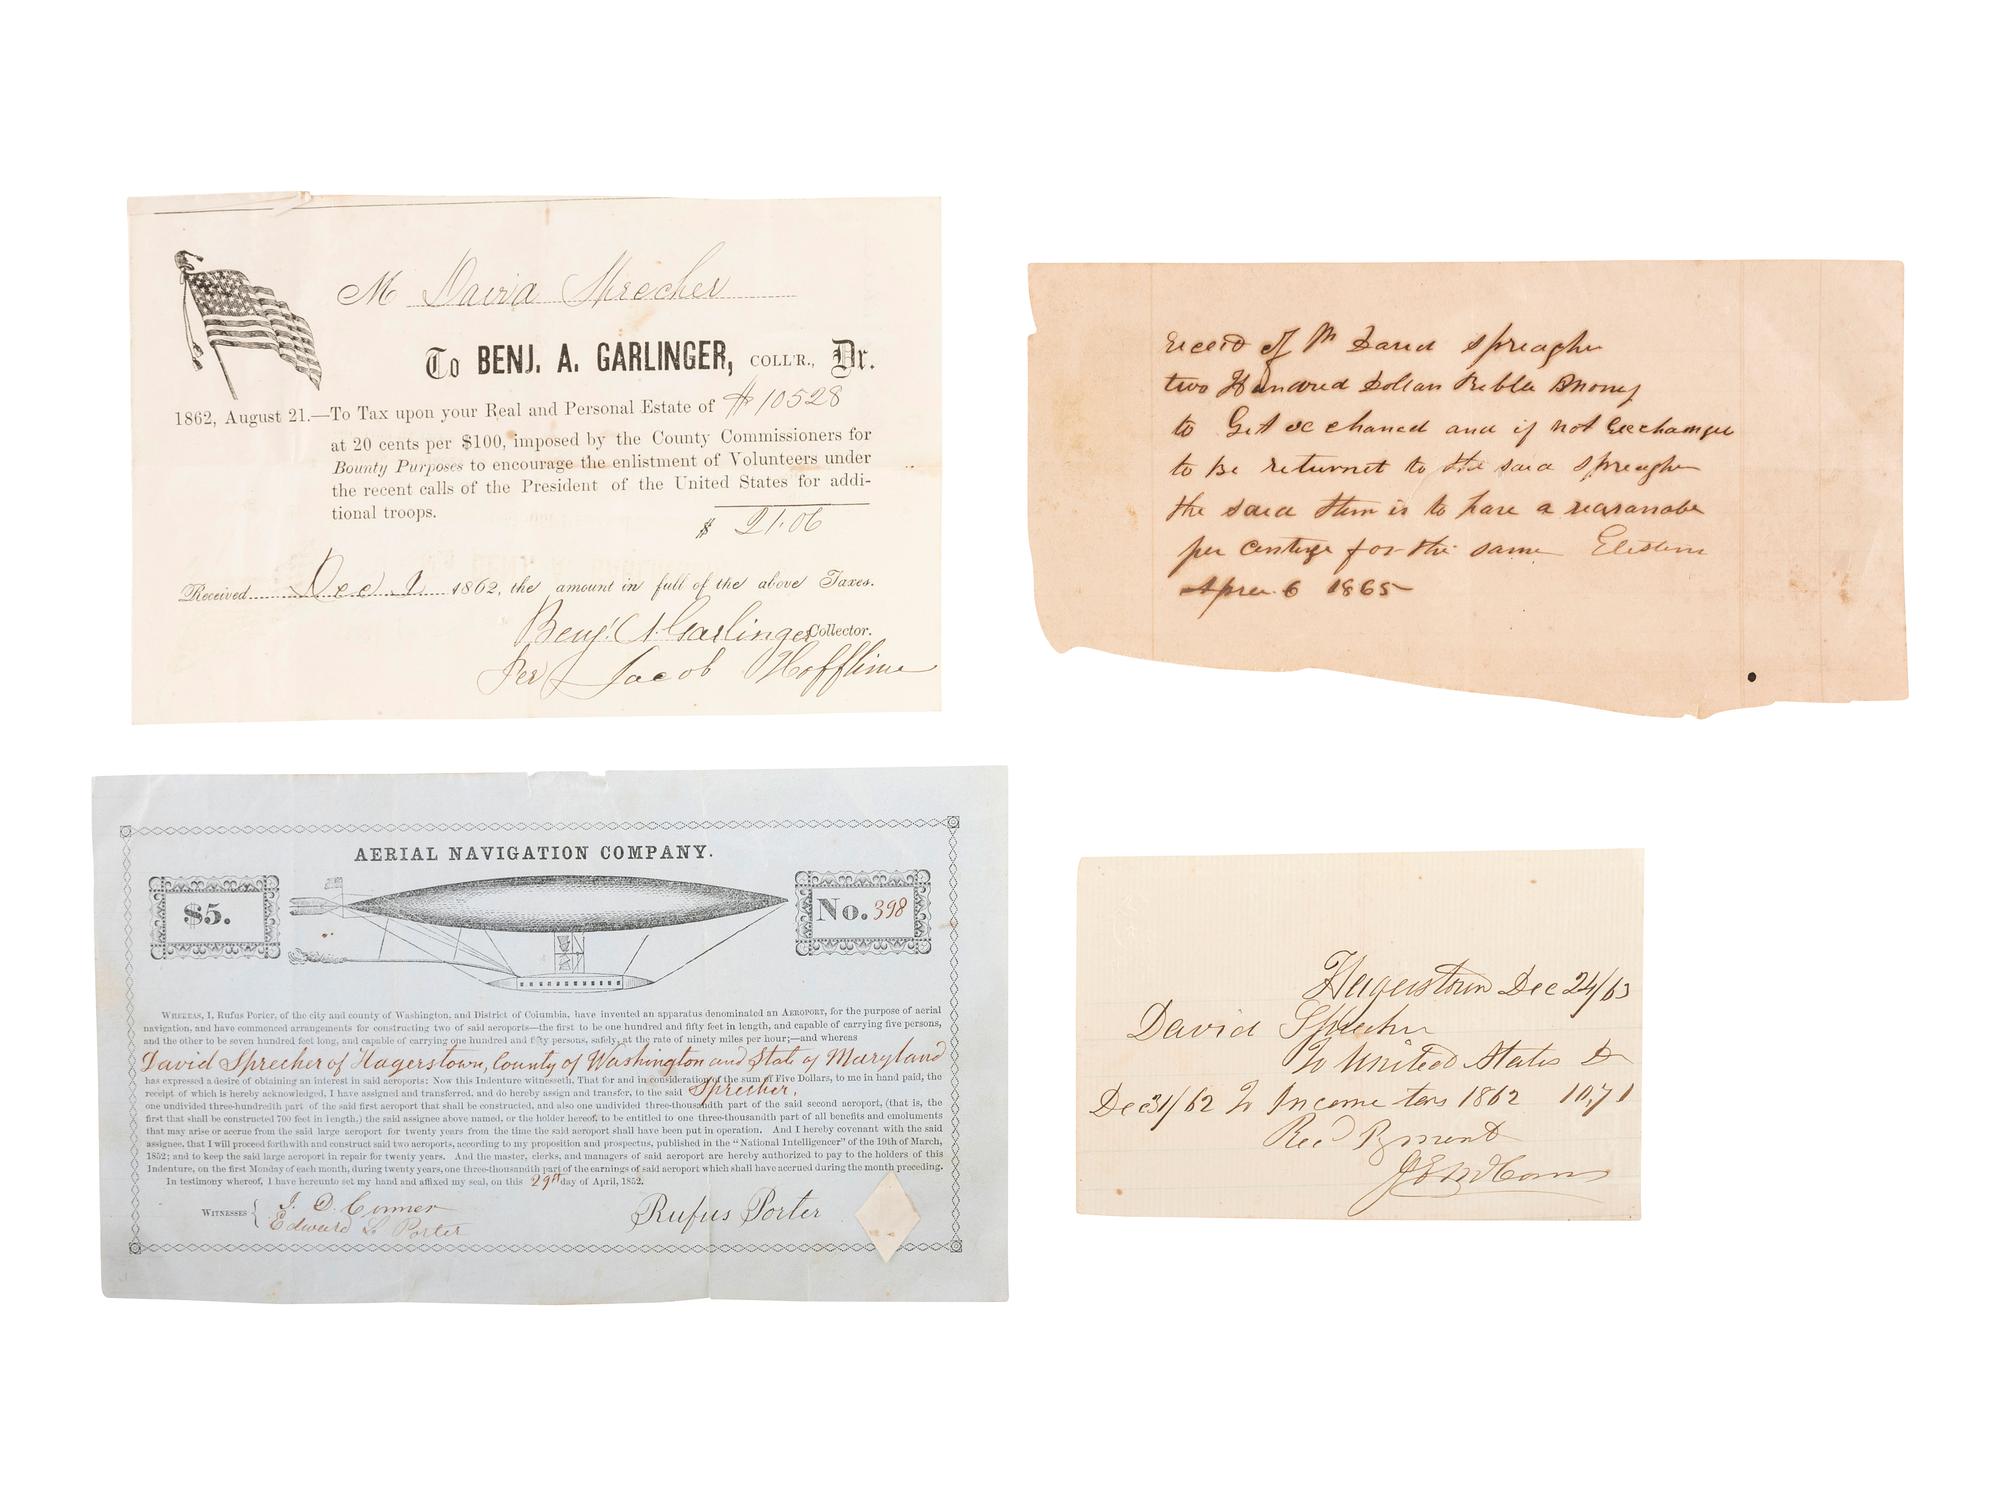 M David Sprecher
To BENJ. A. GARLINGER, COLL'R., Dr.
1862, August 21.—To Tax upon your Real and Personal Estate of $10528
at 20 cents per $100, imposed by the County Commissioners for
Bounty Purposes to encourage the enlistment of Volunteers under
the recent calls of the President of the United States for addi-
tional troops.
$ 21.06
Received Dec 1 1862, the amount in full of the above Taxes.
Benj. A. Garlinger Collector.
Per Jacob Hoffline
Receed of Mr David spreagher
two Hundred Dollars Rebble Money
to Get exchanced and if not Excchanger
to be returnet to the said spreagher
the said Stem is to have a reasanabe
per centige for the same
Aprer 6 1865
AERIAL NAVIGATION COMPANY.
$5.
No. 398
WHEREAS, I, Rufus Porter, of the city and county of Washington, and District of Columbia, have invented an apparatus denominated an AEROPORT, for the purpose of aerial
navigation, and have commenced arrangements for constructing two of said aeroports—the first to be one hundred and fifty feet in length, and capable of carrying five persons,
and the other to be seven hundred feet long, and capable of carrying one hundred and fifty persons, safely, at the rate of ninety miles per hour;—and whereas
David Sprecher of Hagerstown, County of Washington and State of Maryland
has expressed a desire of obtaining an interest in said aeroports: Now this Indenture witnesseth, That for and in consideration of the sum of Five Dollars, to me in hand paid, the
receipt of which is hereby acknowledged, I have assigned and transferred, and do hereby assign and transfer, to the said Sprecher,
one undivided three-hundredth part of the said first aeroport that shall be constructed, and also one undivided three-thousandth part of the said second aeroport, (that is, the
first that shall be constructed 700 feet in length,) the said assignee above named, or the holder hereof, to be entitled to one three-thousandth part of all benefits and emoluments
that may arise or accrue from the said large aeroport for twenty years from the time the said aeroport shall have been put in operation. And I hereby covenant with the said
assignee, that I will proceed forthwith and construct said two aeroports, according to my proposition and prospectus, published in the "National Intelligencer" of the 19th of March,
1852; and to keep the said large aeroport in repair for twenty years. And the master, clerks, and managers of said aeroport are hereby authorized to pay to the holders of this
Indenture, on the first Monday of each month, during twenty years, one three-thousandth part of the earnings of said aeroport which shall have accrued during the month preceding.
In testimony whereof, I have hereunto set my hand and affixed my seal, on this 29th day of April, 1852.
WITNESSES { J. D. Conner
Edward L. Porter
Rufus Porter
Hagerstown Dec 24/63
David Sprecher
To United States Dr
Dec 31/62 To Income tax 1862 10,71
Rec'd Pyment